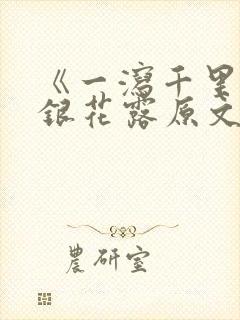 《一泻千里
银花露原文
農研室